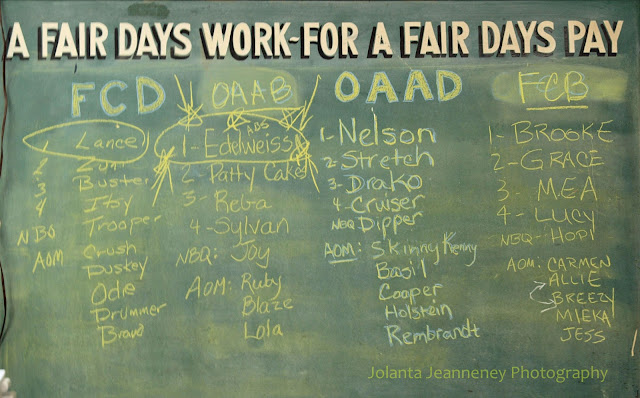 A FAIR DAYS WORK-FOR A FAIR DAYS PAY
FCD
Lance
2 Zuni
3 Buster
4 Itsy
NBQ Trooper
AOM Crush
Duskey
Odie
Drummer
Bravo
OAAB
ADS
1- Edelweiss
2- Patty Cake
3- Reba
4-Sylvan
NBQ: Joy
AOM: Ruby
Blaze
Lola
OAAD
1-Nelson
2-Stretch
3-Drako
4-Cruiser
NBQ Dipper
AOM: Skinny Kenny
Basil
Cooper
Holstein
Rembrandt
FCB
1- BROOKE
2-GRACE
3. MEA
4- LUCY
NBQ- HOPI
AOM: CARMEN
ALLIE
BREEZY
MIEKA
JESS
Jolanta Jeanneney Photography